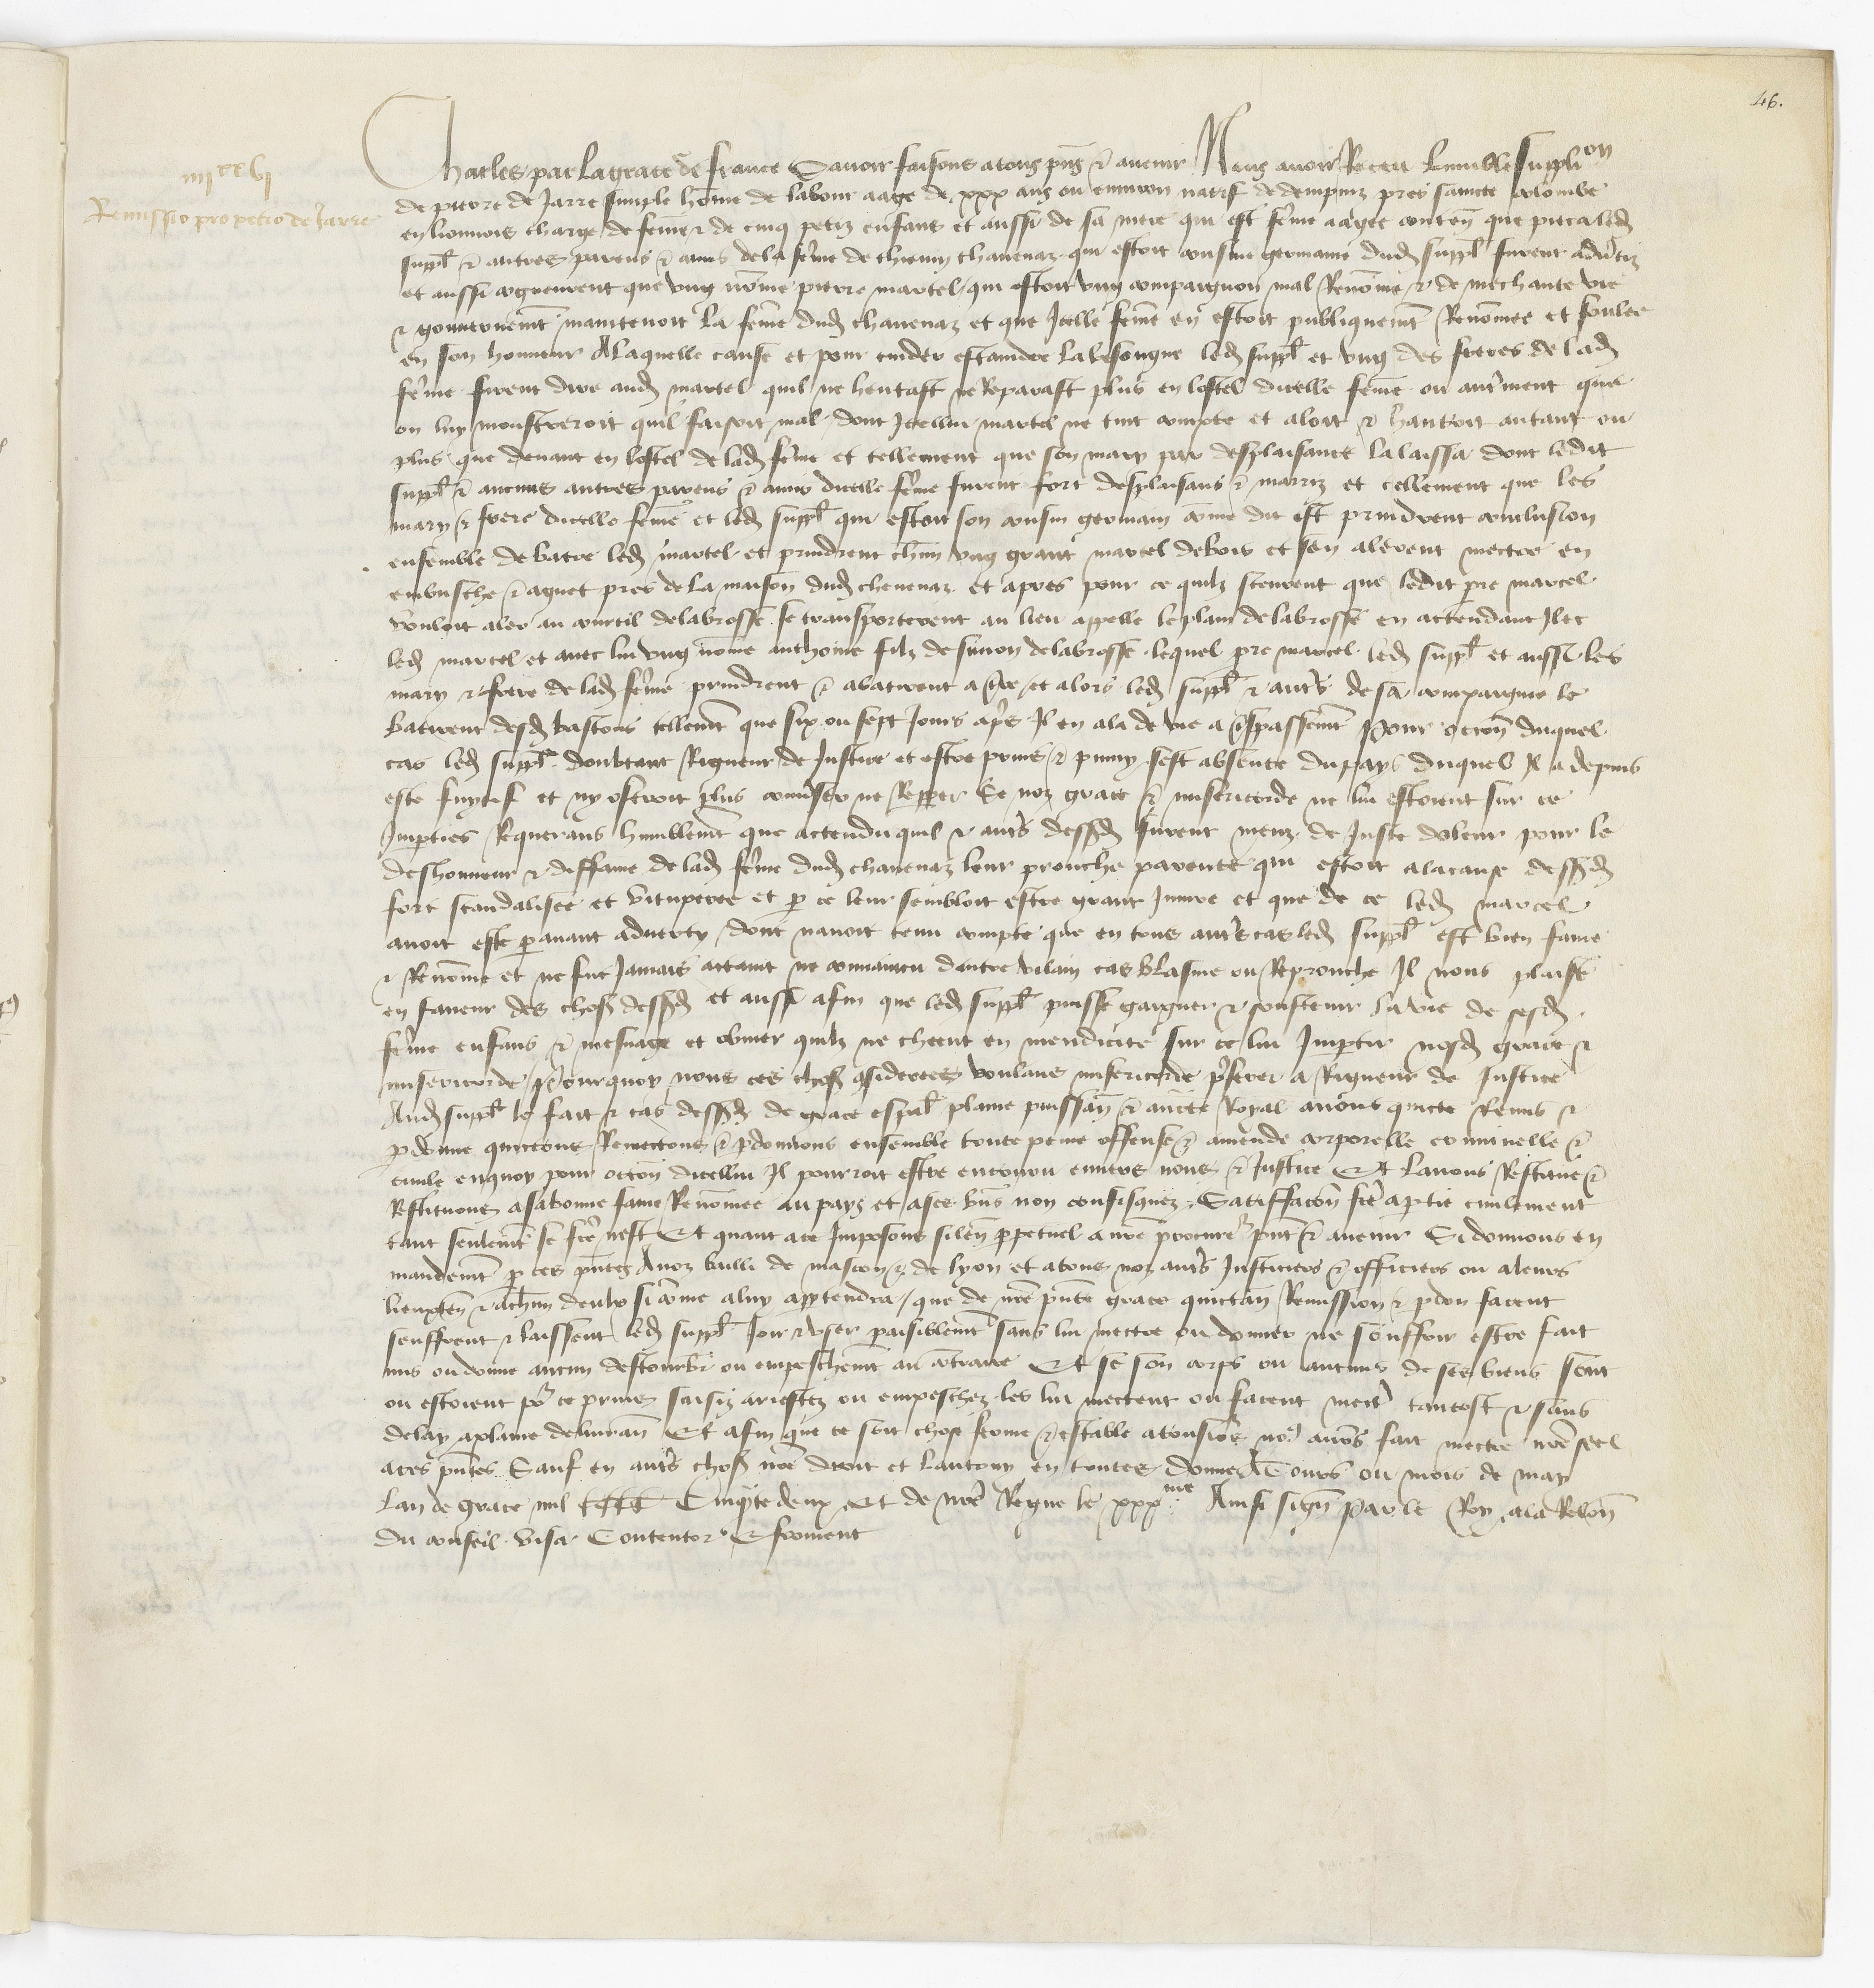 46.
iiiixxvi
Remissio pro petro de Jarre
Charles par la grace de france Savoir faisons a tous pns & avenir Nous avoir Receu lumble suppliōn
de pierre de Jarre simple hōme de labour aage de xxx ans ou environ natif de dempniz pres saincte colombe
en lionnois charge de fēme & de cinq petiz enfans et aussi de sa mere qui est fēme aagee conten que pieca led
suppl & autres parens & amis de la fēme de thieny chavenaz qui estoit cousine germaine dud suppl furent advtiz
et aussi cogneurent que ung nōme pierre martel qui estoit ung compaignon mal Renōme & de mechante vie
& gouvernemt maintenoit la fēme dud chavenaz et que Icelle fēme en estoit publiquemt Renōmee et foulee
en son honneur A laquelle cause et pour cuider estaindre la besongne led suppl et ung des freres de lad
fēme firent dire aud martel quil ne hentast ne Reparast plus en lostel dicelle fēme ou autment que
on luy monstreroit quil faisoit mal dont Icellui martel ne tint compte et aloit & hantoit autant ou
plus que devant en lostel de lad fēme et tellement que son mary par desplaisance la laissa dont ledit
suppl & aucuns autres parens & amis dicelle fēme furent fort desplaisans & marriz et tellement que les
mary & frere dicelle fēme et led suppl qui estoit son cousin germain cōme dit est prindrent conclusion
ensemble de batre led martel et prindrent chun ung grant martel de bois et sen alerent mectre en
embusche & aguet pres de la maison dud chevenaz et apres pour ce quilz sceurent que ledit pre marcel
vouloit aler au courtil de labrosse se transporterent au lieu appelle le plain de labrosse en actendant Ilec
led marcel et avec lui ung nōme anthoine filz de simon de labrosse lequel pre marcel led suppl et aussi les
mary & frere de lad fēme prindrent & abatirent a tre et alors led suppl & auts de sa compaignie le
batirent desd bastons tellemt que six ou sept Jours aps Il en ala de vie a tspassemt Pour occōn duquel
cas led suppl doubtant Rigueur de Justice et estre prins & puny sest absente du pays duquel Il a depuis
este fuytif et ny oseroit plus convser ne Repper se noz grace & misericorde ne lui estoient sur ce
Impties Requerans humblemt que actendu quil & auts dessd furent meuz de Juste doleur pour le
deshonneur & diffame de lad fēme dud chavenaz leur prouche parente qui estoit a la cause dessd
fort scandalisee et vituperee et p ce leur sembloit estre grant Injure et que de ce led marcel
avoit este pavant adverty dont navoit tenu compte que en tous auts cas led suppl est bien fame
& Renōme et ne fut Jamais actaint ne convaincu dautre vilain cas blasme ou Reprouche Il nous plaise
en faveur des chos dessd et aussi afin que led suppl puisse gaigner & soustenir la vie de sesd
fēme enfans & mesnage et obvier quilz ne cheent en mendicite sur ce lui Impartir nosd grace &
misericorde Pourquoy nous ces chos csiderees voulans misericorde pferer a Rigueur de Justice
Aud suppl le fait & cas dessd de grace espal plaine puissan & aucte Royal avons quicte Remis &
pdōne quictons Remectons & pdonnons ensemble toute peine offense & amende corporelle criminelle &
civile en quoy pour occōn dicellui Il pourroit estre encouru envers nous & Justice Et lavons Restitue &
Restituons a sa bonne fame Renōmee au pays et a ses bns non confisquez Satiffacōn fcē a ptie civilement
tant seulemt se fcē nest Et quant a ce Imposons silen ppetuel a nre procur pnt & avenir Si donnons en
mandemt p ces pntes A noz bailli de mascon & de lyon et a tous noz auts Justiciers & officiers ou a leurs
lieuxten & a chun deulx si cōme a luy apptendra que de nre pnte grace quictan Remission & pdon facent
seuffrent & laissent led suppl Joir & user paisiblemt sans lui mectre ou donner ne souffrir estre fait
mis ou donne aucun destourbr ou empeschemt au cōtraire Et se son corps ou aucuns de ses biens sont
ou estoient pr ce prins saisiz arrestez ou empeschez les lui mectent ou facent mectr tantost & sans
delay a plaine delivran Et afin que ce soit chose ferme & estable a tousiors no avōs fait mectre nre seel
a ces pntes Sauf en auts chos nre droit et lautruy en toutes Donne A tours ou mois de may
Lan de grace mil cccc Cinqte deux Et de nre Regne le xxxme Ainsi sign Par le Roy a la Relōn
du conseil visa Contentor E froment